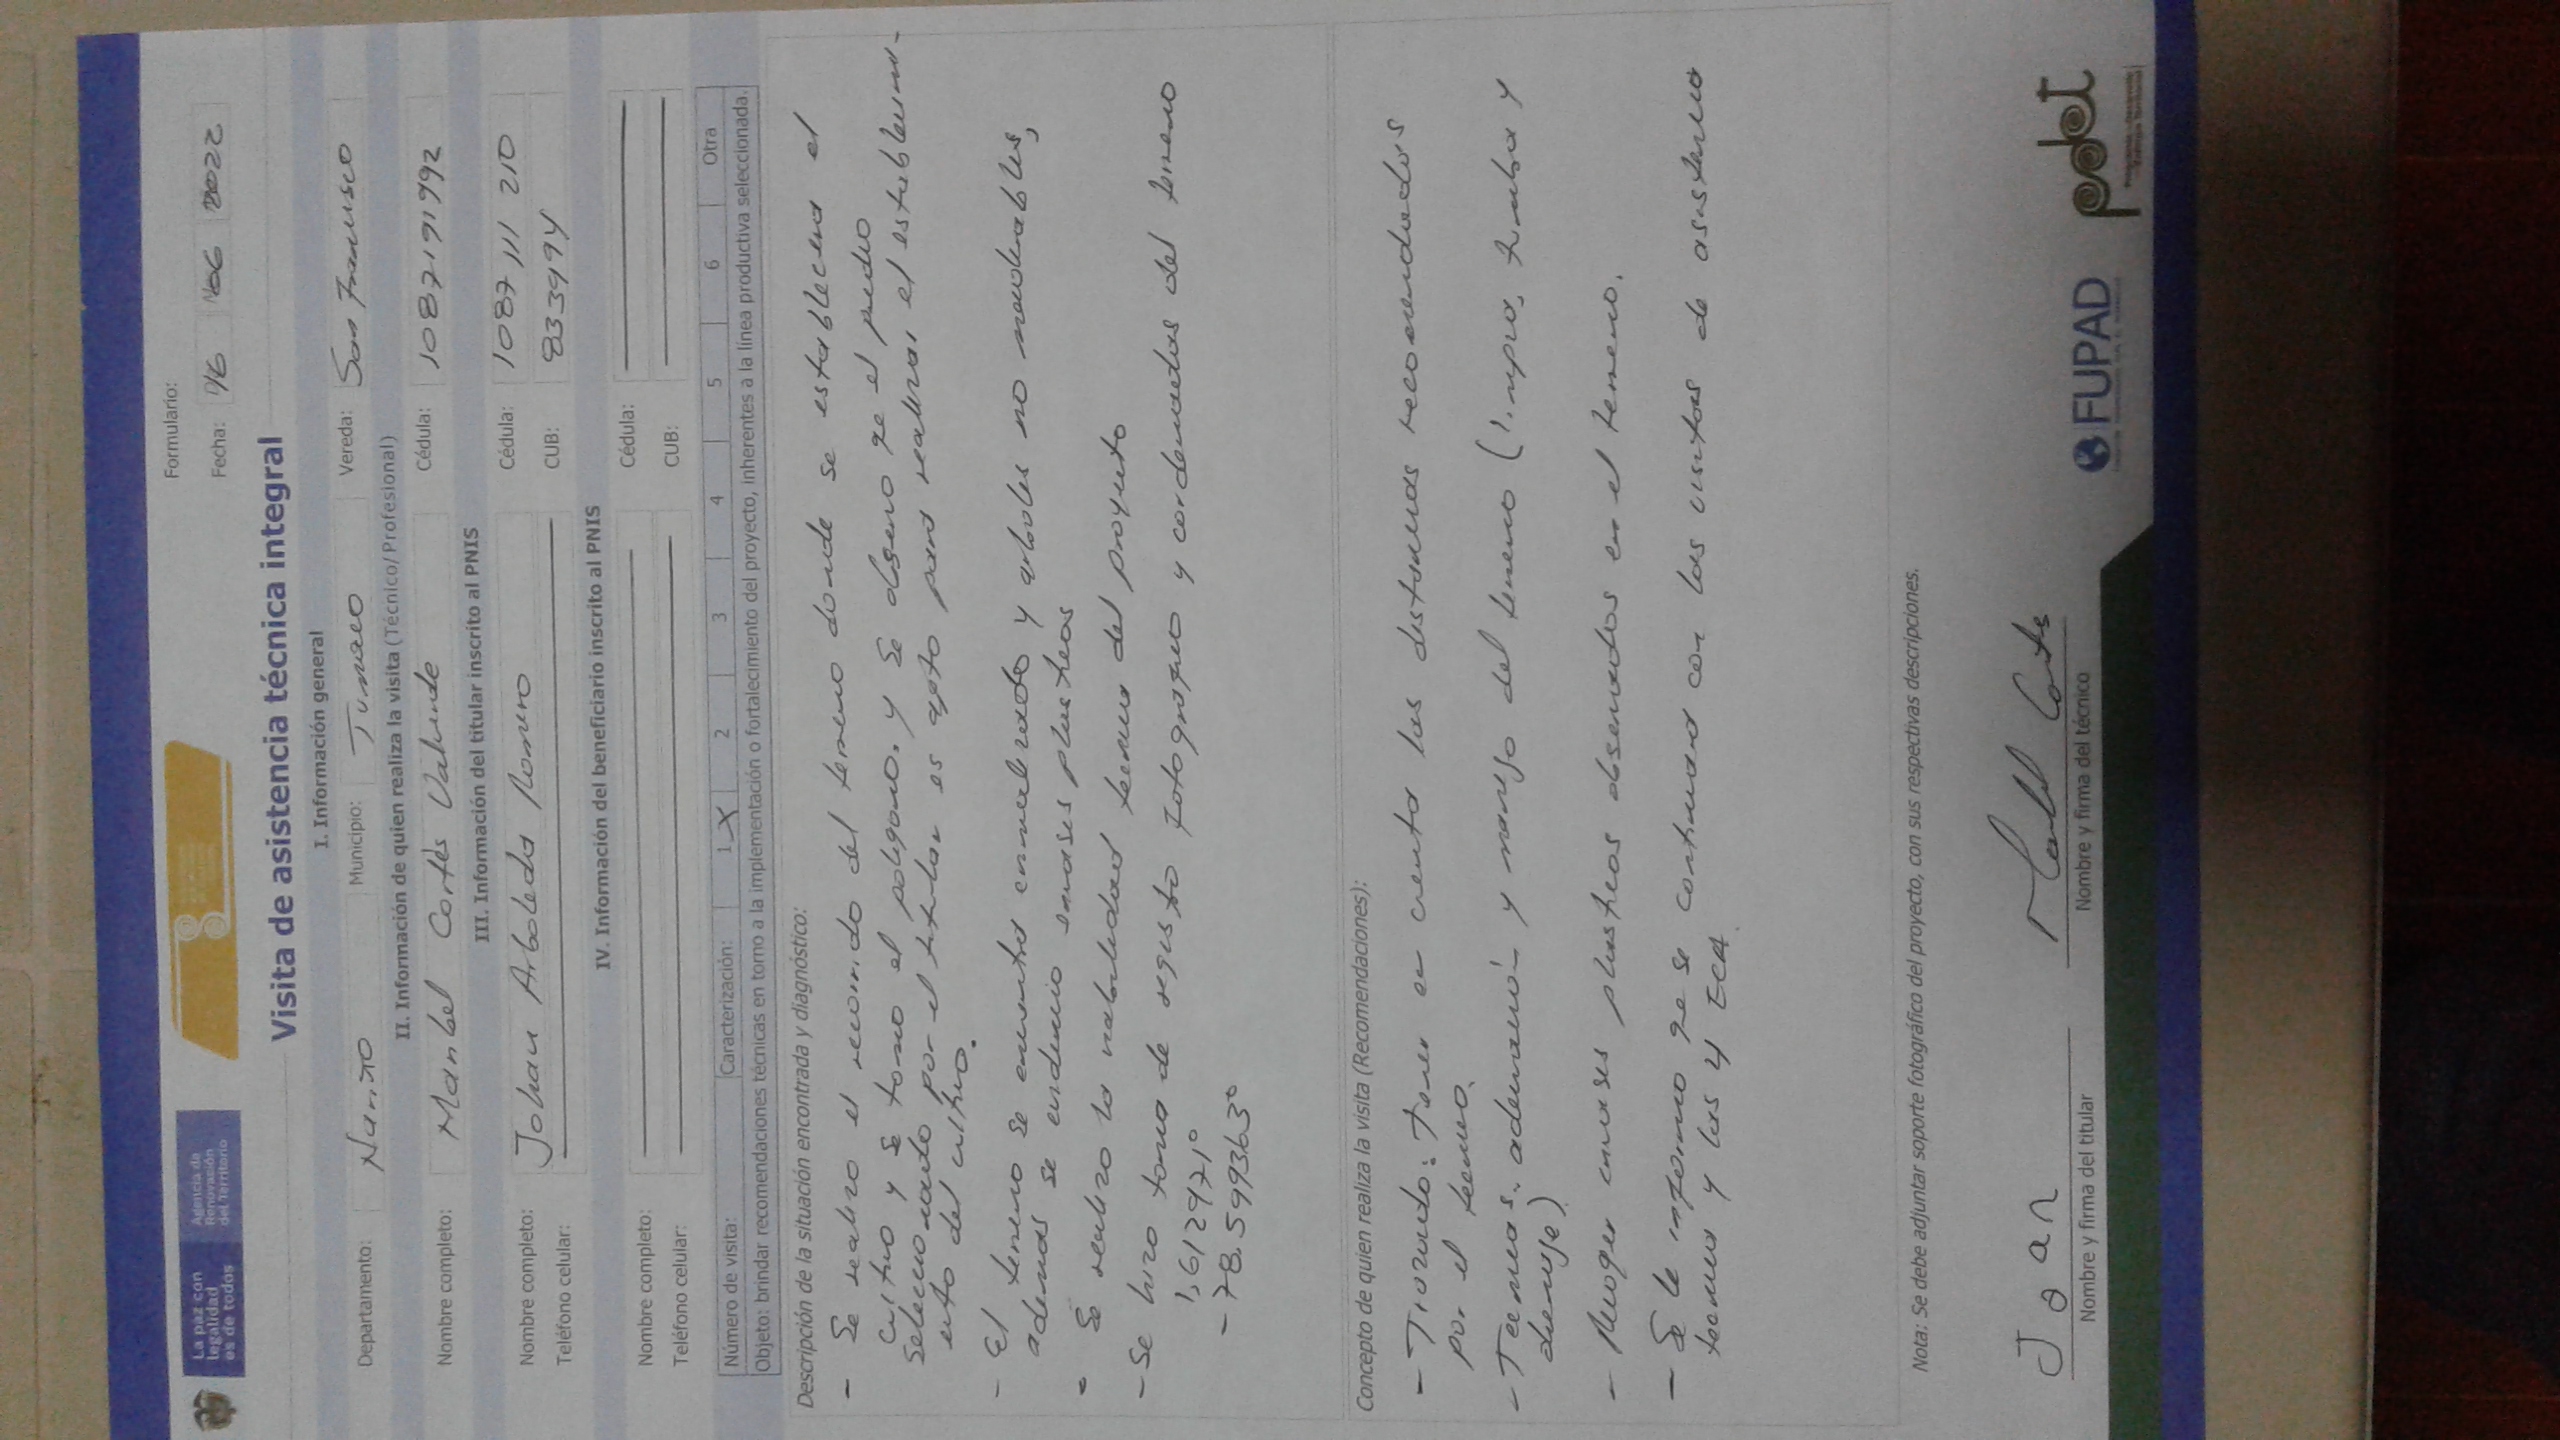 La paz con
legalidad
es de todos
Agencia de
Renovación
del Territorio
Formulario:
Fecha: 16 2022
Visita de asistencia técnica integral
I. Información general
Departamento: Nariño Municipio: Tumaco Vereda: San Francisco
II. Información de quien realiza la visita (Técnico/Profesional)
Nombre completo: Maribel Cortés Valverde Cédula: 1087191992
III. Información del titular inscrito al PNIS
Nombre completo: Johan Arboleda Romero Cédula: 1087 111 210
Teléfono celular: CUB: 8339194
IV. Información del beneficiario inscrito al PNIS
Nombre completo: Cédula:
Teléfono celular: CUB:
Número de visita: Caracterización: 1 X 2 3 4 5 6 Otra
Objeto: brindar recomendaciones técnicas en torno a la implementación o fortalecimiento del proyecto, inherentes a la línea productiva seleccionada.
Descripción de la situación encontrada y diagnóstico:
- Se realizo el recorrido del terreno donde se establecera el
cultivo y se tomo el poligono. y se que el predio
seleccionado por el titular es apto para realizar el establecimi-
ento del cultivo.
- El terreno se encuentra enmalezado y arboles no maderables,
ademas se evidencio envases plasticos
- Se realizo la viabilidad tecnica del proyecto
- Se hizo toma de registo fotografico y cordenadas del terreno
1,612971°
- 78.599363°
Concepto de quien realiza la visita (Recomendaciones):
- Trazado: Tener en cuenta las distancias recomendadas
por el tecnico.
- Tecnicas. adecuación y manejo del terreno (limpia, tumba y
drenaje)
- Recoger envases plasticos observados en el terreno.
- Se le informo que se continuara con las visitas de asistencia
tecnica y las 4 ECA.
Nota: Se debe adjuntar soporte fotográfico del proyecto, con sus respectivas descripciones.
Joan Maribel Cortés
Nombre y firma del titular Nombre y firma del técnico
FUPAD pdet